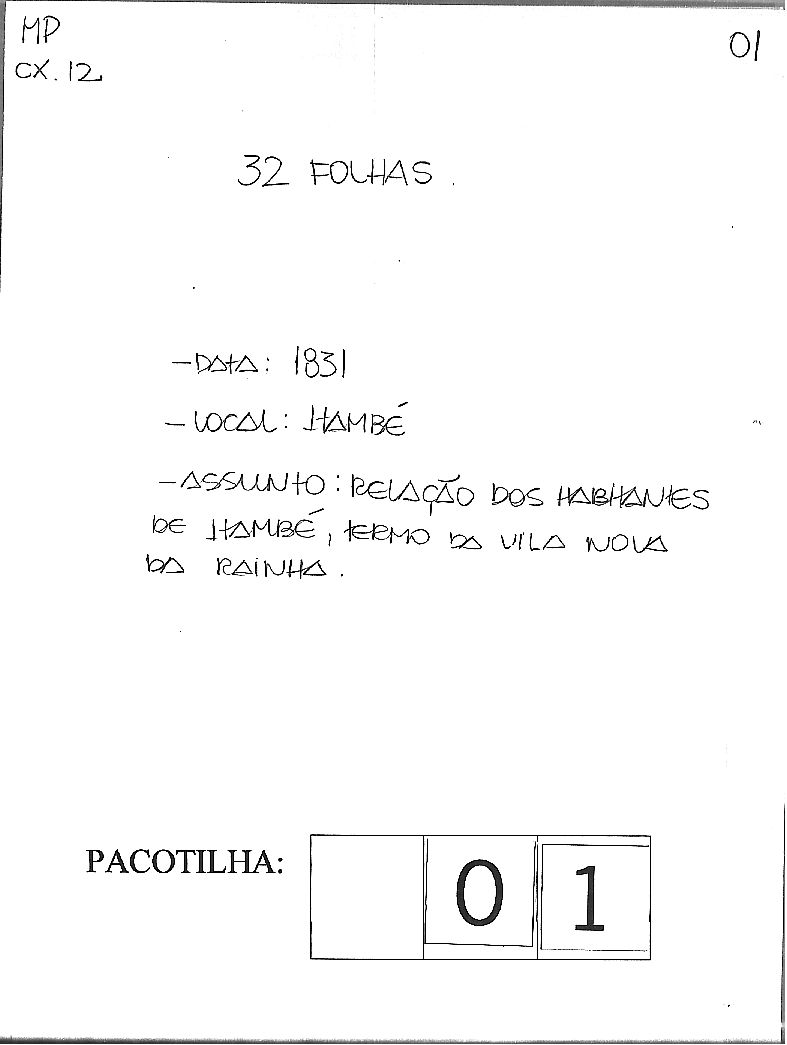 MP
CX. 12
01
32 FOLHAS.
- DATA: 1831
- LOCAL: ITAMBÉ
- ASSUNTO: RELAÇÃO DOS HABITANTES
DE ITAMBÉ, TERMO DA VILA NOVA
DA RAINHA.
PACOTILHA: 01